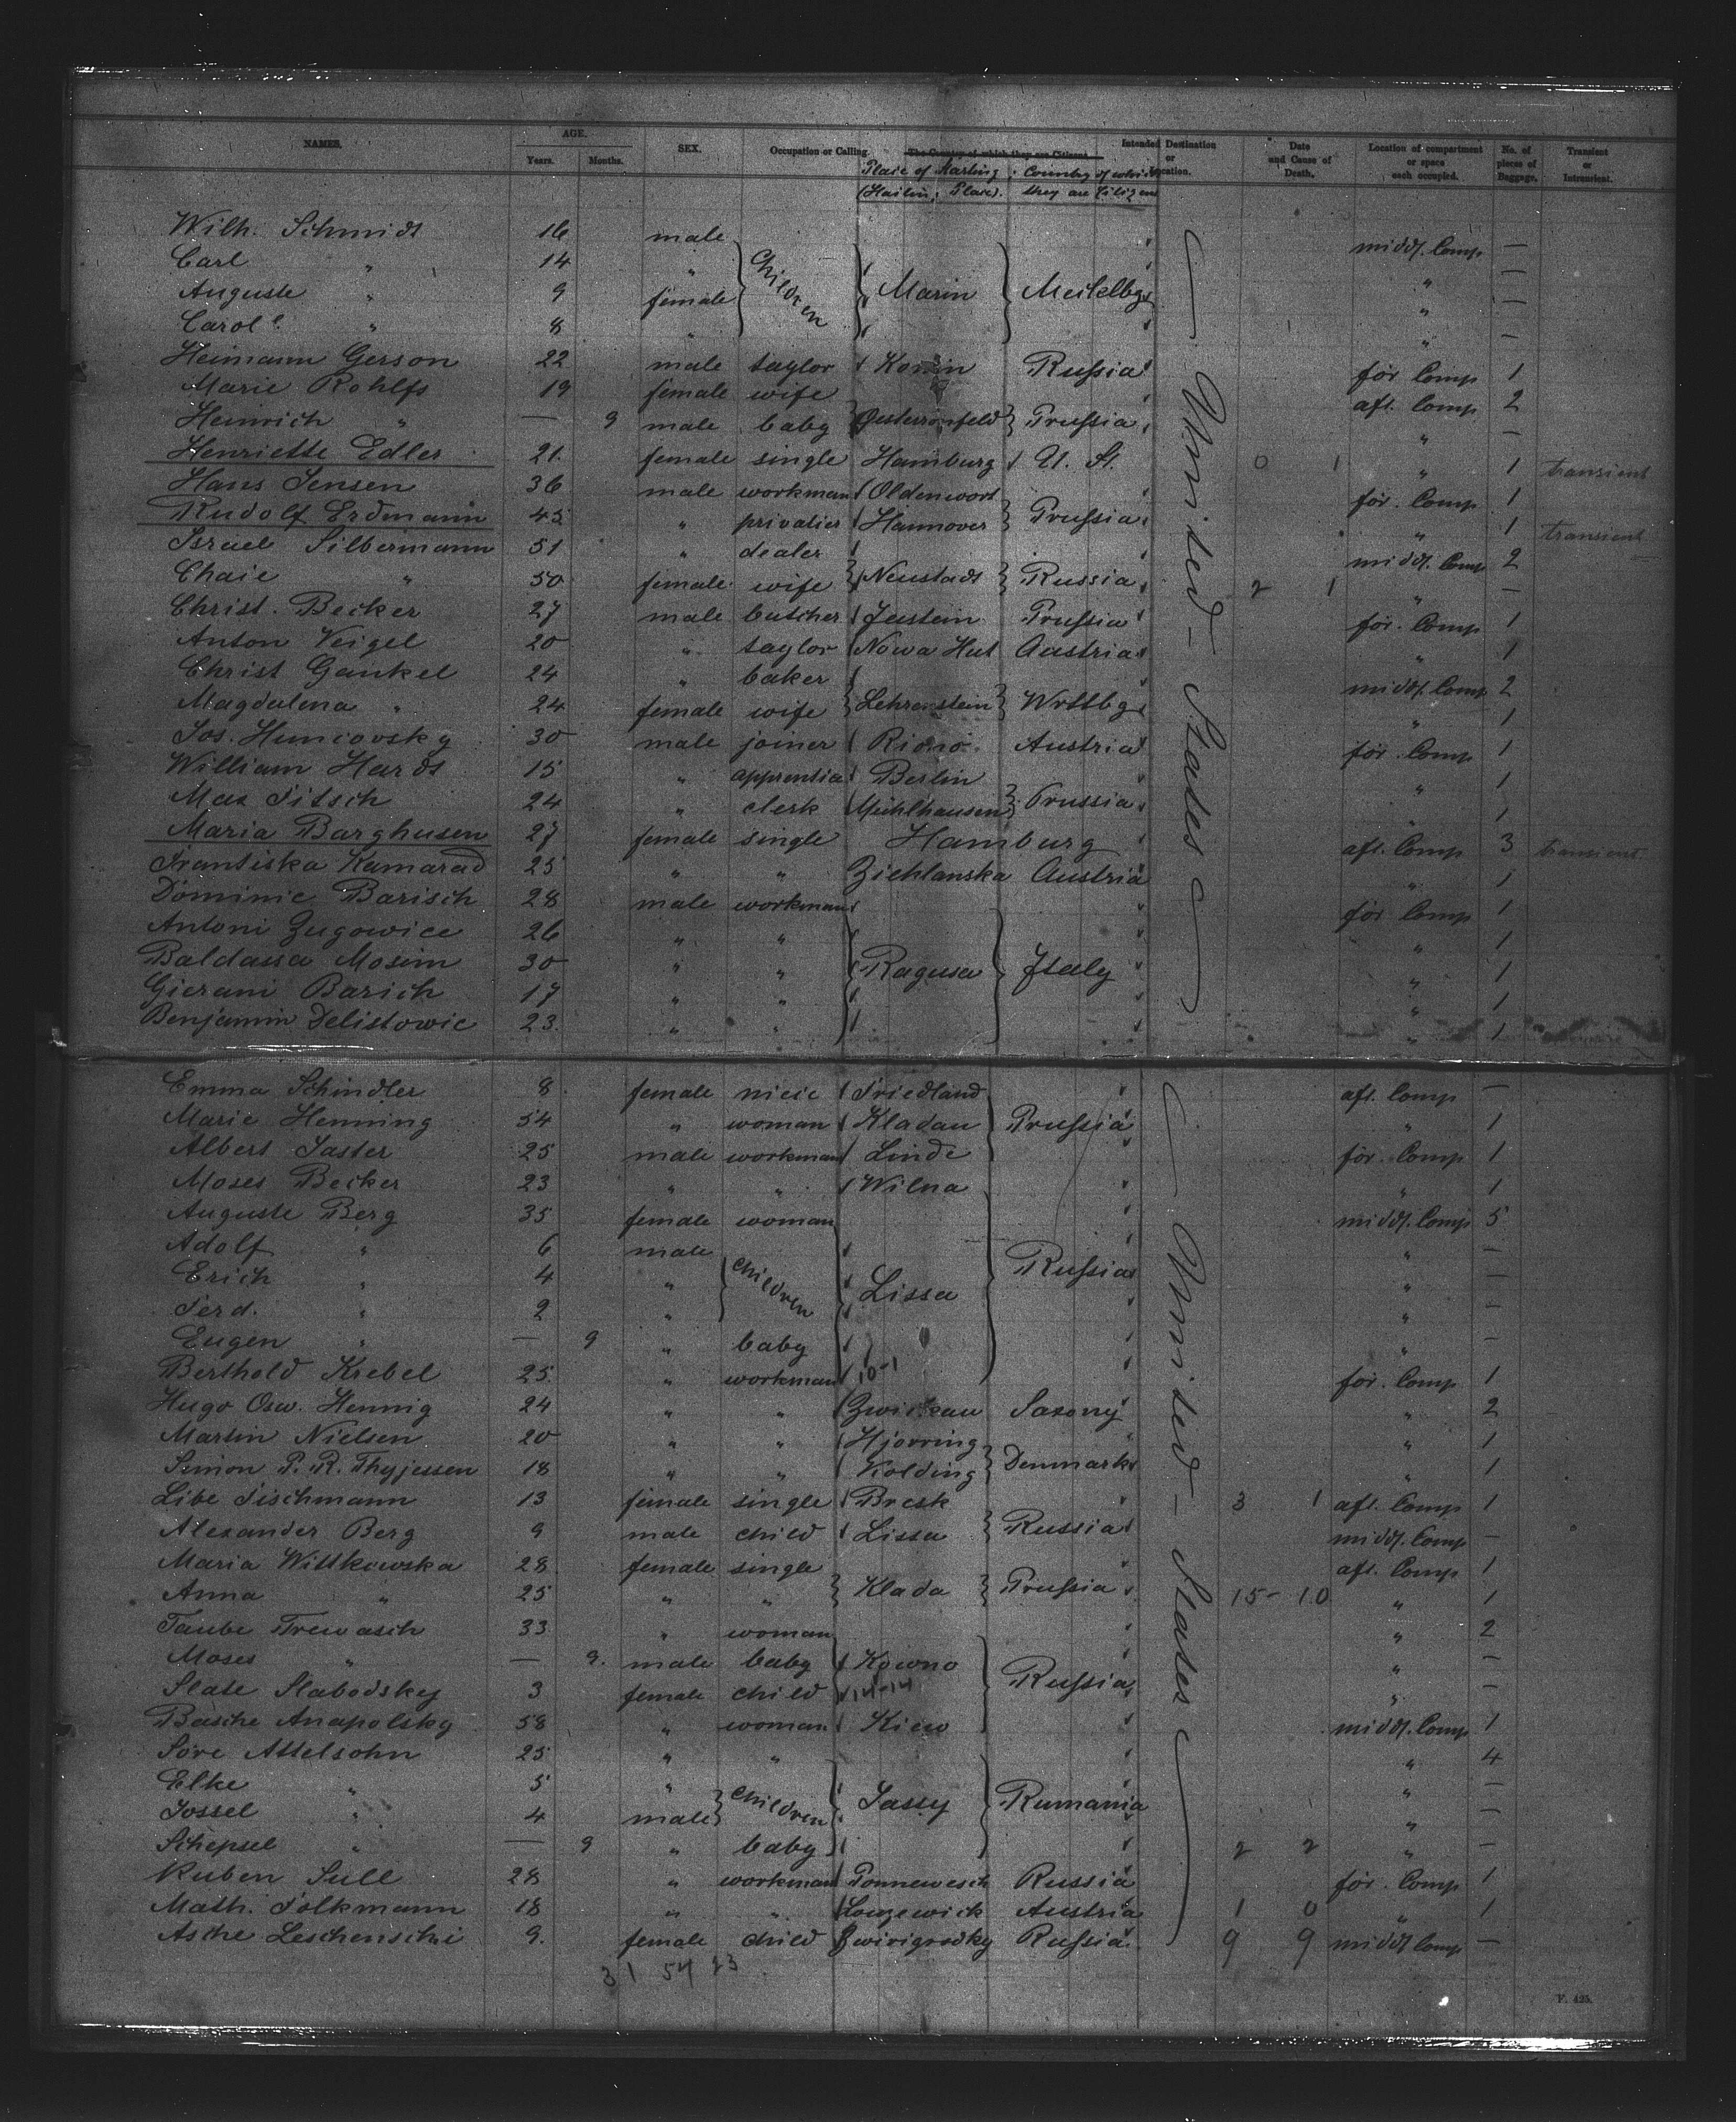 NAMES. AGE. Years. Months. SEX. Occupation or Calling. The Country of which they are Citizens. Intended Destination or Location. Date and Cause of Death. Location of compartment or space each occupied. No. of pieces of Baggage. Transient or Intransient.
Wilh. Schmidt 16 male middl. Comp —
Carl " 14 " Children Marin Mecklbg. " —
Auguste " 9 female " —
Carol e. " 8 " " —
Heimann Gerson 22 male taylor Russia for Comp 1
Marie Rohlfs 19 female wife aft. Comp 2
Heinrich " — 9 male baby Prussia " —
Henriette Edler 21 female single Hamburg U. St. 0 1 " 1 transient
Hans Jensen 36 male workman Oldenwort for. Comp 1
Rudolf Erdmann 45 " privatier Hannover Prussia " 1 transient
Israel Silbermann 51 " dealer middl. Comp 2
Chaie " 50 female wife Neustadt Russia 2 1 " —
Christ. Becker 27 male butcher Jastein Prussia for. Comp 1
Anton Veigel 20 " taylor Nowa Hut Austria " 1
Christ Gankel 24 " baker middl. Comp 2
Magdalena " 24 female wife Lehrenstein Wrttbg " 1
Jos. Huncovsky 30 male joiner Austria for. Comp 1
William Hardt 15 " apprentice Berlin " 1
Max Titsch 24 " clerk Mühlhausen Prussia " 1
Maria Barghusen 27 female single Hamburg aft. Comp 3 transient
Frantiska Kamarad 25 " " Ziehlanska Austria " 1
Dominic Barisch 28 male workman for Comp 1
Antoni Zugowice 26 " " " 1
Baldassa Mosim 30 " " Ragusa Italy " 1
Gierani Barich 17 " " " 1
Benjamin Delistowic 23 " " " 1
United States
Emma Schindler 8 female niece Friedland aft. Comp —
Marie Henning 54 " woman Kladau Prussia " 1
Albert Jaster 25 male workman Linde for. Comp 1
Moses Becker 23 " " Wilna " 1
Auguste Berg 35 female woman middl. Comp 5
Adolf " 6 male " —
Erich " 4 " children Lissa Russia " —
Ferd. " 2 " " —
Eugen " — 9 " baby " —
Berthold Krebel 25 " workman 10-1 for. Comp 1
Hugo Osw. Hennig 24 " " Zwickau Saxony " 2
Martin Nielsen 20 " " Hjorring " 1
Simon P. R. Thyjessen 18 " " Kolding Denmark " 1
Libe Fischmann 13 female single Bresk 3 1 aft. Comp 1
Alexander Berg 9 male child Lissa Russia middl. Comp —
Maria Wittkowska 28 female single aft. Comp 1
Anna " 25 " " Klada Prussia 15- 10 " 1
Taube Trewasch 33 " woman " 2
Moses " — 9 male baby Kowno " —
Slate Slabodsky 3 female child 14-14 Russia " —
Basche Anapolsky 58 " woman Kiew middl. Comp 1
Sore Attelsohn 25 " " " 4
Elke " 5 " children " —
Jossel " 4 male Jassy Rumania " —
Schepsel " — 9 " baby 2 2 " —
Ruben Sull 28 " workman Ponnewesch Russia for. Comp 1
Math. Folkmann 18 " " Louzewick Austria 1 0 " 1
Asche Leschenschi 9. female child Zwirigrodky Russia 9 9 middl Comp —
United States
31 54 23
F. 425.